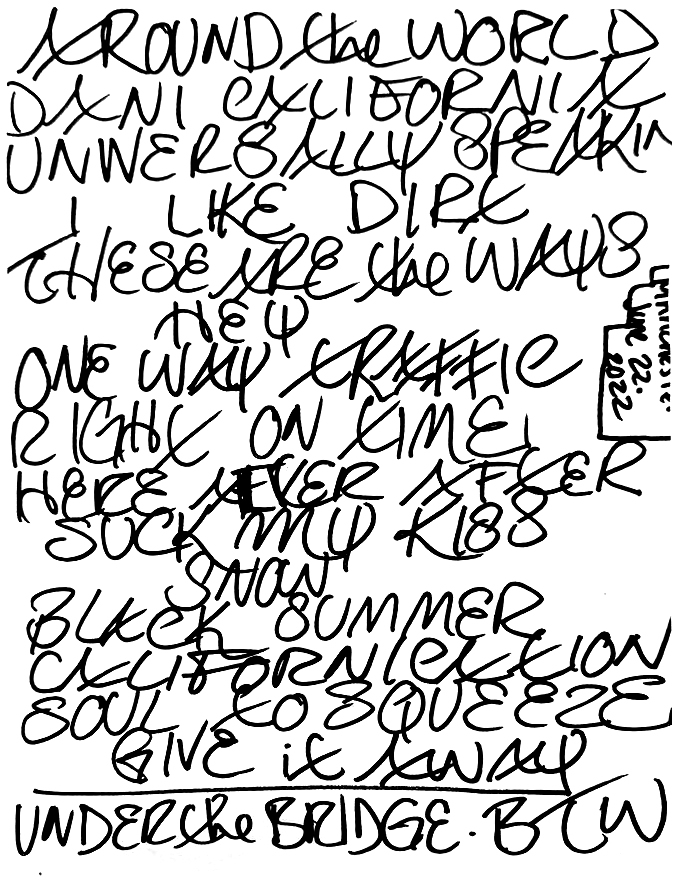 AROUND the WORLD
DANI CALIFORNIA
UNIVERSALLY SPEAKIN
I LIKE DIRT
THESE ARE the WAYS
HEY
ONE WAY TRAFFIC
RIGHT ON TIME
HERE EVER AFTER
SUCK MY KISS
SNOW
BLACK SUMMER
CALIFORNICATION
SOUL TO SQUEEZE
GIVE it AWAY
UNDER the BRIDGE. BTW
MANCHESTE.
JUNE 22.
2022